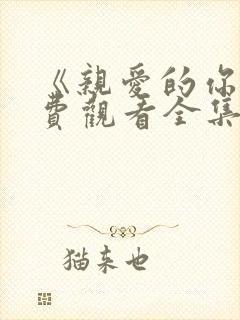 《親愛的你
費觀看全集
猫来也